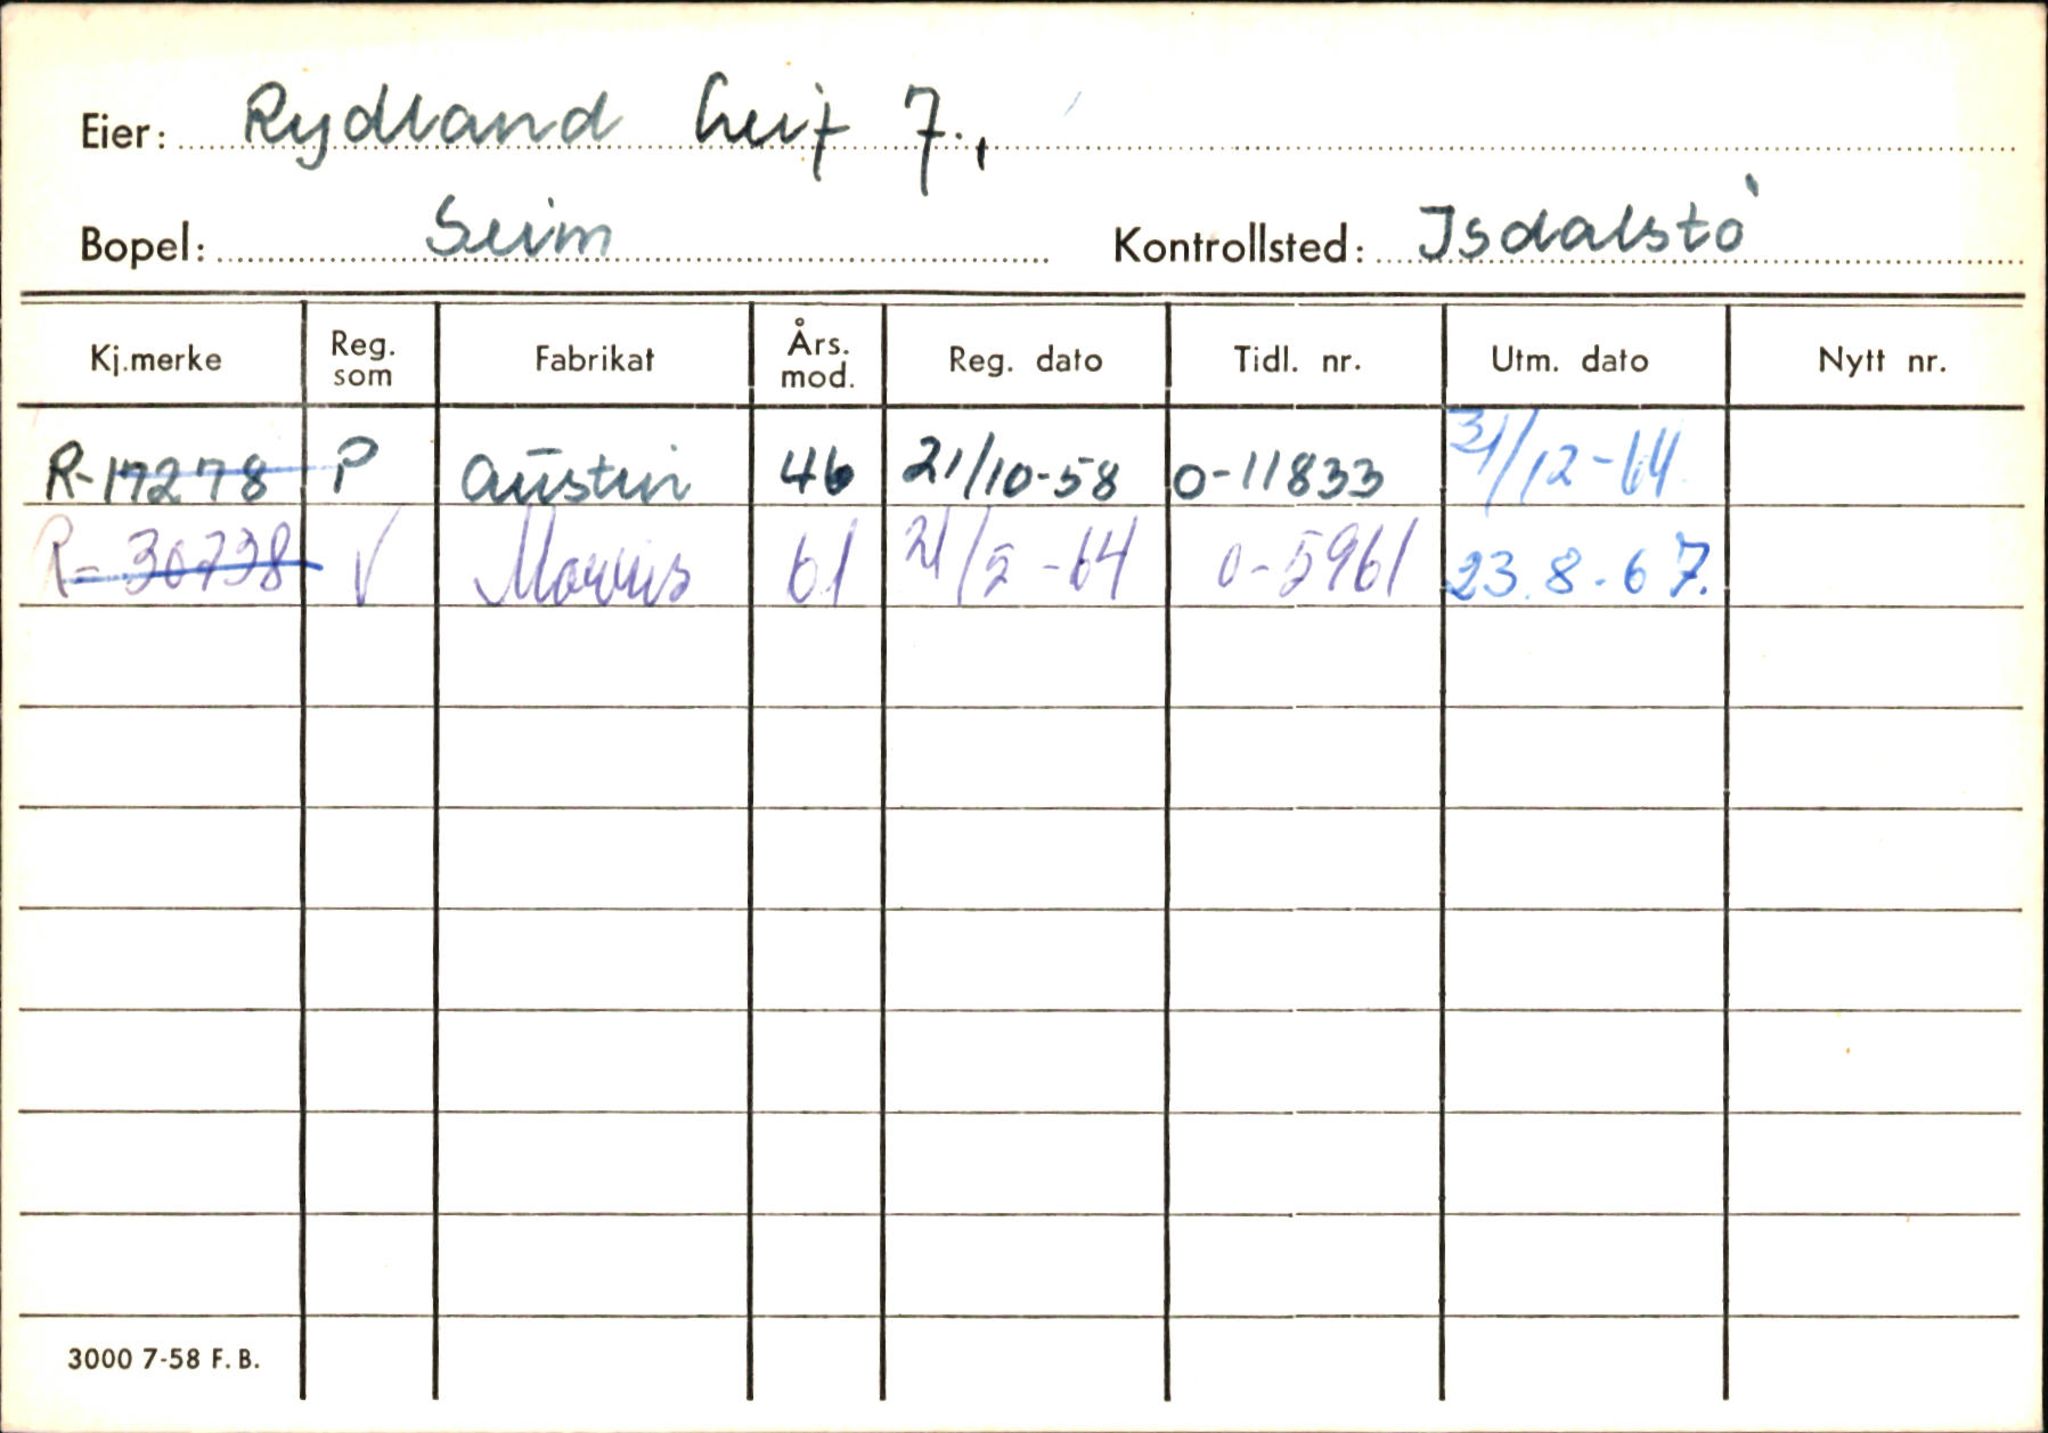 Eier: Rydland Leif F.,
Bopel: Seim Kontrollsted: Isdalstö
Kj.merke Reg. som Fabrikat Års. mod. Reg. dato Tidl. nr. Utm. dato Nytt nr.
R-17278 P Austin 46 21/10-58 O-11833 31/12-64
R-30738 V Morris 61 21/5-64 O-5961 23.8.67.
3000 7-58 F. B.